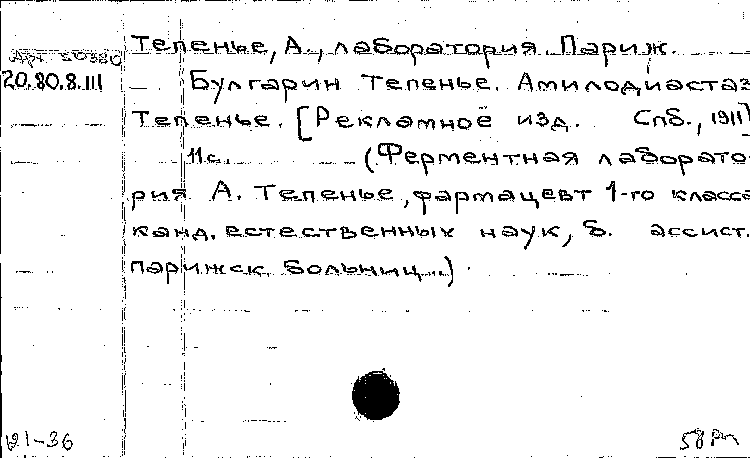 Тепенье, А., лаборатория. Париж.
Арт. 50380
20.80.8.III
Булгарин Тепенье. Амилодиастаз
Тепенье. [Рекламное изд. Спб., 1911]
11с. (Ферментная лаборато-
рия А. Тепенье, фармацевт 1-го класса
канд. естественных наук, б. ассист.
парижск. больниц...)
121-36
58